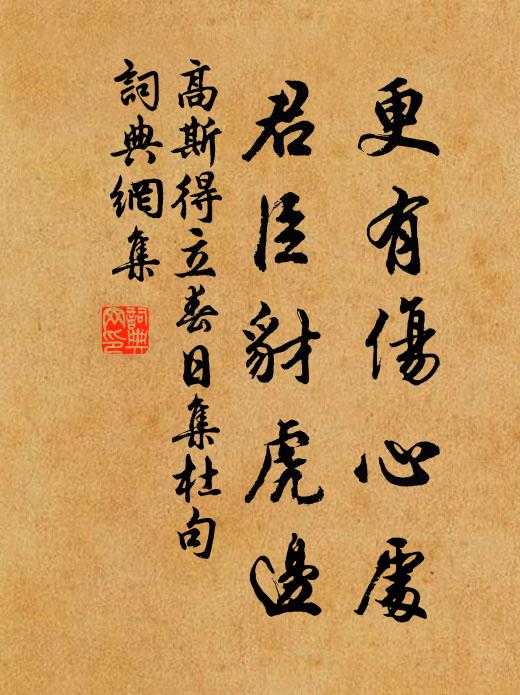 更有傷心處
君臣豺虎邊
高斯得立春日集杜句
詞典網集
詞典網印